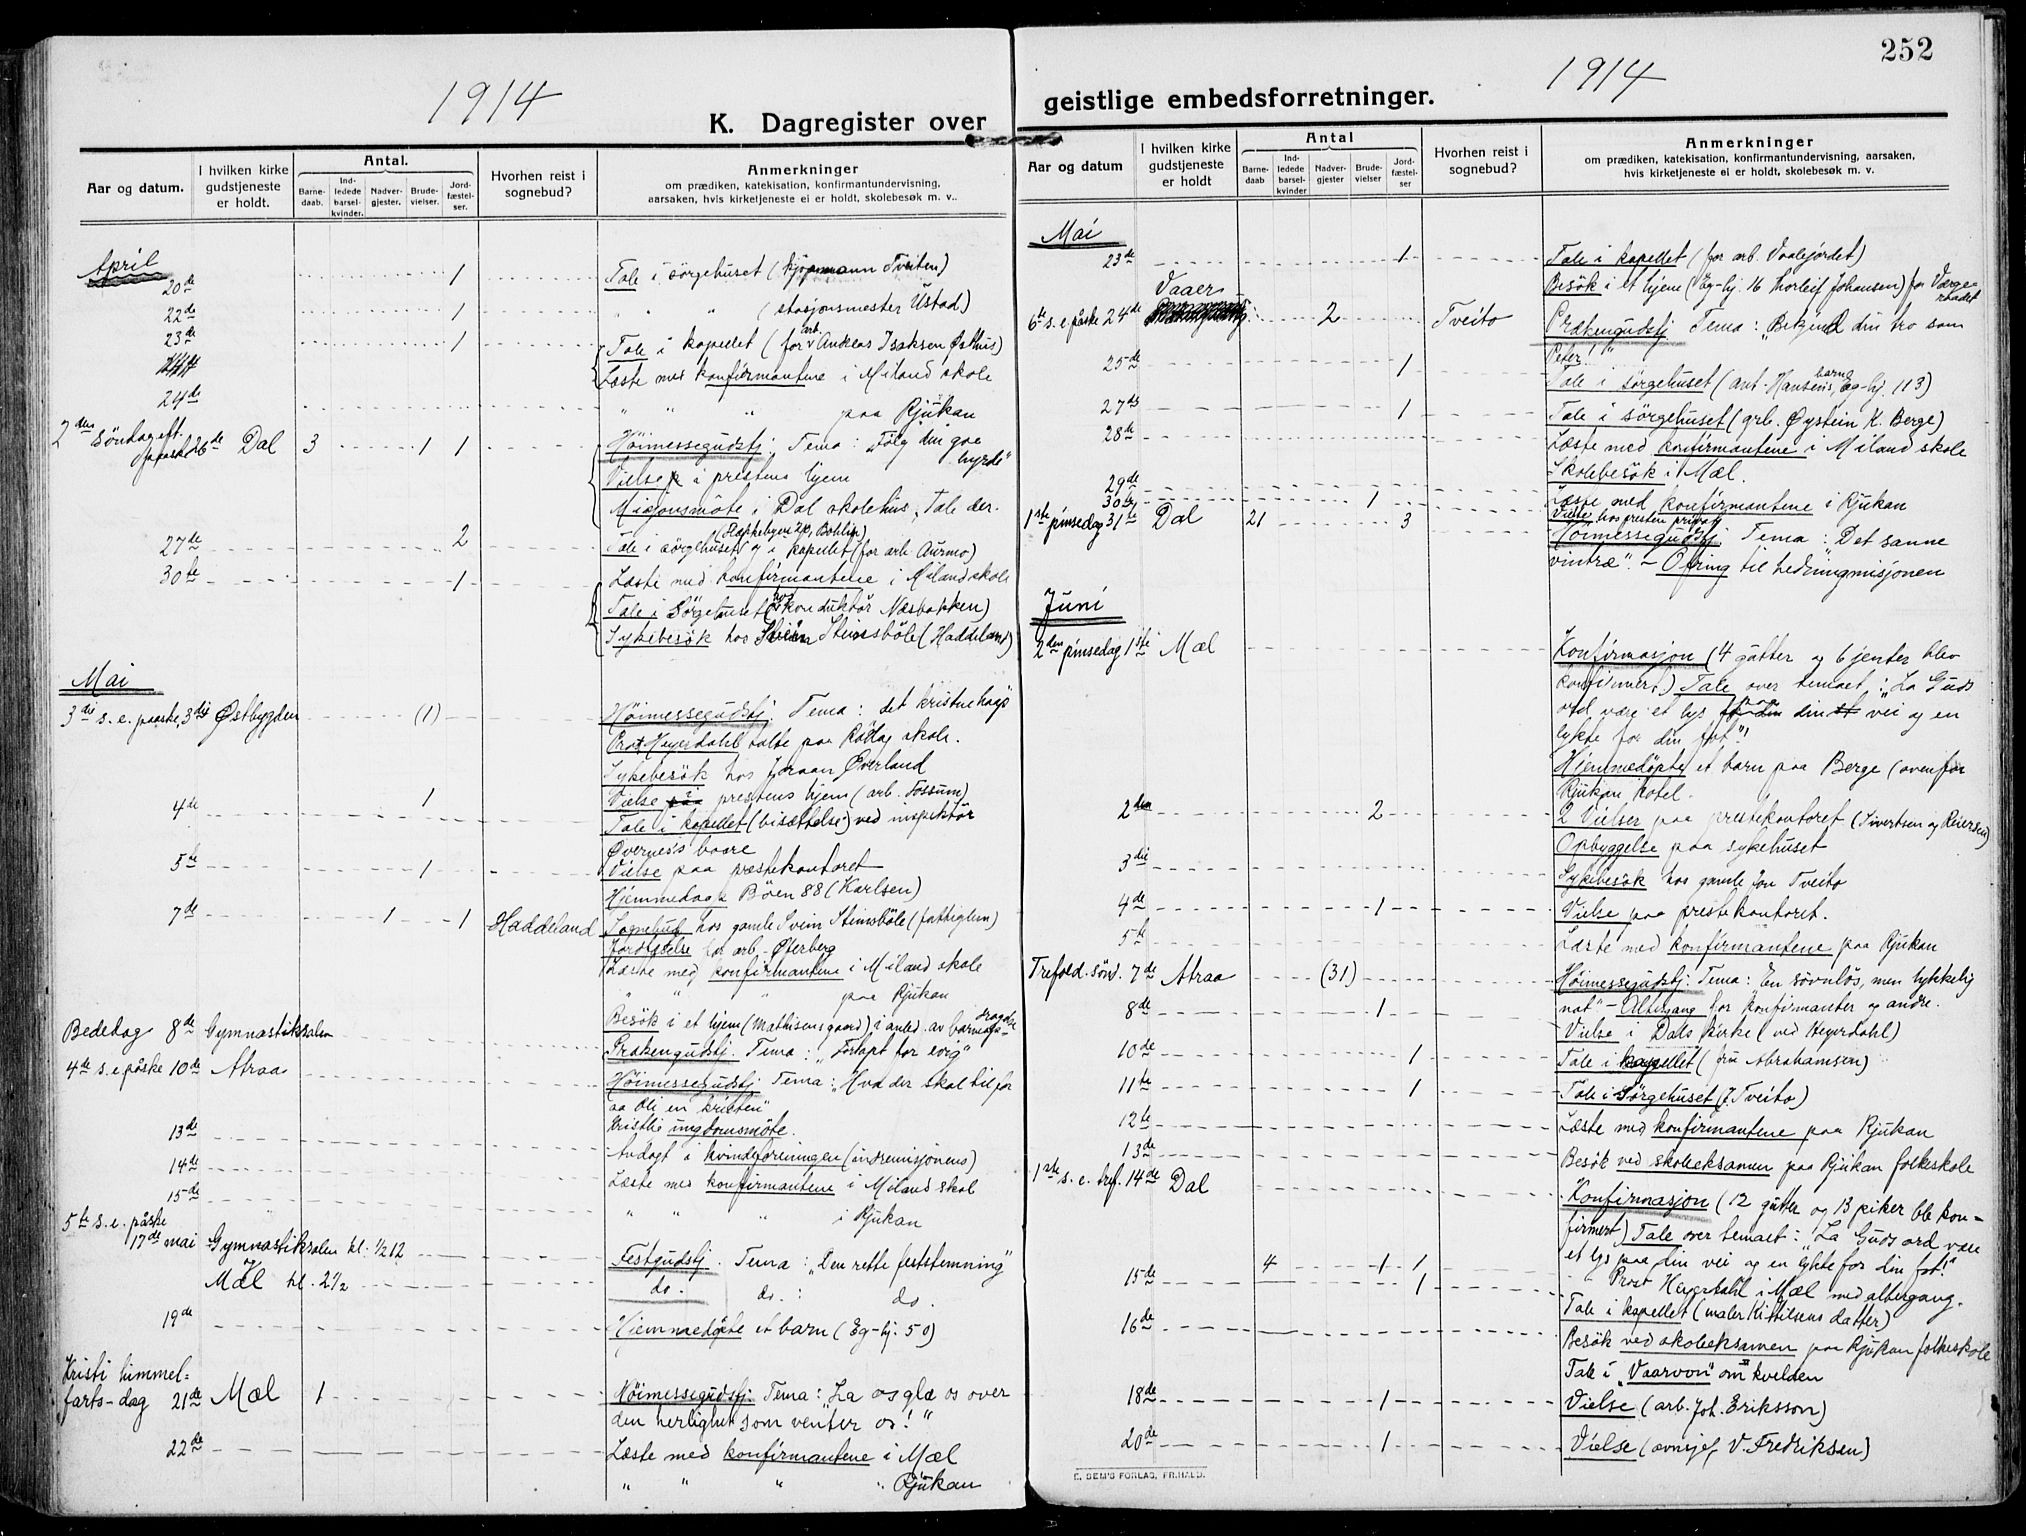 1914
K. Dagregister over
Aar og datum.
I hvilken kirke gudstjeneste er holdt.
Antal.
Barne-daab.
Ind-ledede barsel-kvinder.
Nadver-gjester.
Brude-vielser.
Jord-fæstel-ser.
Hvorhen reist i sognebud?
Anmerkninger
om prædiken, katekisation, konfirmantundervisning,
aarsaken, hvis kirketjeneste ei er holdt, skolebesøk m. v..
April
20de 1 Tale i sörgehuset (kjøpmann Tveiten)
22de 1 " " (stasjonsmester Ustad)
23de 1 Tale i kapellet (for arb. Andreas Isaksen Østhus)
Læste med konfirmantene i Miland skole
24de " " " paa Rjukan
2den söndag eft. paaske 26de Dal 3 1 1 Höimessegudstj. Tema: "Følg din gode hyrde"
Vielse i prestens hjem
Misjonsmöte i Dal skolehus, Tale der.
27de 2 Tale i sörgehuset og i kapellet (for arb. Aurmo)
30te 1 Læste med konfirmantene i Miland skole
Tale i Sörgehuset (hos konduktör Næsbakken)
Sykebesök hos Stein Steinsböle (Haddeland)
Mai
3die s. e. paaske, 3die Østbygden (1) Höimessegudstj. Tema: det kristne haap
Prost Heyerdahl talte paa Rollag skole.
Sykebesök hos Joraan Øverland
4de 1 Vielse i prestens hjem (arb. Fossum)
Tale i kapellet (bisættelse) ved inspektör
Øvernes's baare
5te 1 Vielse paa prestekontoret
Hjemmedaab Böen 88 (Karlsen)
7de 1 1 Haddeland Sognebud hos gamle Svein Steinsböle (fattiglem)
Jordfæstelse for arb. Østerberg
Læste med konfirmantene i Miland skole
" " " paa Rjukan
Besök i et hjem (Mathisensgaard) i anled. av barne
Bededag 8de Gymnastiksalen Prækengudstj. Tema: "Fortapt for evig"
4de s. e. påske 10de Atraa Höimessegudstj. Tema: "Hva der skal til for
aa bli en kristen"
13de Kristlig ungdomsmöte.
14de Andagt i kvindeforeningen (indremisjonens)
15de Læste med konfirmantene i Miland skol
" " " i Rjukan
5te s. e. påske
17de mai Gymnastiksalen kl. 1/2 12 Festgudstj. Tema: "Den rette feststemning"
og Mæl kl. 2 1/2 do. do. : do.
19de Hjemmedöpte et barn (Eg-hj. 50)
Kristi himmel=
farts-dag 21de Mæl 1 Höimessegudstj: Tema: "La os glæ os over
den herlighet som venter os!"
22de Læste med konfirmantene i Mæl
" " " " Rjukan
252
1914
geistlige embedsforretninger.
Aar og datum
I hvilken kirke gudstjeneste er holdt
Antal
Barne-daab
Ind-ledede barsel-kvinder
Nadver-gjester
Brude-vielser
Jord-fæstel-ser
Hvorhen reist i sognebud?
Anmerkninger
om prædiken, katekisation, konfirmantundervisning, aarsaken,
hvis kirketjeneste ei er holdt, skolebesøk m. v.
Mai
23de 1 Tale i kapellet (for arb. Vaalejordet)
Besök i et hjem (Eg-hj. 16 Thorleif Johansen) for Værgeraadet
6te s. e. påske 24de Vaaer 2 Tveito Prækengudstj Tema: "Bekjend din tro som
Peter!"
25de 1 Tale i sörgehuset (ant. Hansens barn, Eg-hj. 113)
27de 1 Tale i sörgehuset (grb. Øystein K. Berge)
28de Læste med konfirmantene i Miland skole
Skolebesök i Mæl.
29de Læste med konfirmantene i Rjukan
30te 1 Vielse hos presten privat
1ste pinsedag 31te Dal 21 3 Höimessegudstj. Tema: "Det sanne
vintræ". - Ofring til hedningmisjonen
Juni
2den pinsedag 1ste Mæl Konfirmasjon (4 gutter og 6 jenter blev
konfirmert) Tale over temaet: "La Guds
ord være et lys paa din vei og en
lykte for din fot"!
Hjemmedöpte et barn paa Berge (ovenfor
Rjukan hotel.
2den 2 2 Vielser paa prestekontoret (Sivertsen og Reiersen)
Opbyggelse paa sykehuset
3die Sykebesök hos gamle Jon Tveito
4de 1 Vielse paa prestekontoret.
5te Læste med konfirmantene paa Rjukan
Trefold. sönd. 7de Atraa (31) Höimessegudstj: Tema: En sövnlös, men lykkelig
nat" - Altergang for konfirmanter og andre.
8de 1 Vielse i Dals kirke (ved Heyerdahl)
10de 1 Tale i kapellet (fru Abrahamsen)
11te 1 Tale i Sörgehuset (J. Tveito)
12te Læste med konfirmantene paa Rjukan
13de Besök ved skoleeksamen paa Rjukan folkeskole
1ste s. e. tref. 14de Dal Konfirmasjon (12 gutter og 13 piker ble kon-
firmert) Tale over temaet: "La Guds ord være
et lys paa din vei og en lykte for din fot!"
4 1 1 Prost Heyerdahl i Mæl med altergang.
15de 1 Tale i kapellet (maler Kittilsens datter)
16de Besök ved skoleeksamen paa Rjukan folkeskole
Tale i "Vaarvon" om kvelden
18de 1 Vielse (arb. Joh. Eriksson)
20de 1 Vielse (ovnsjef V. Fredriksen)
E. SEM'S FORLAG, FR.HALD.